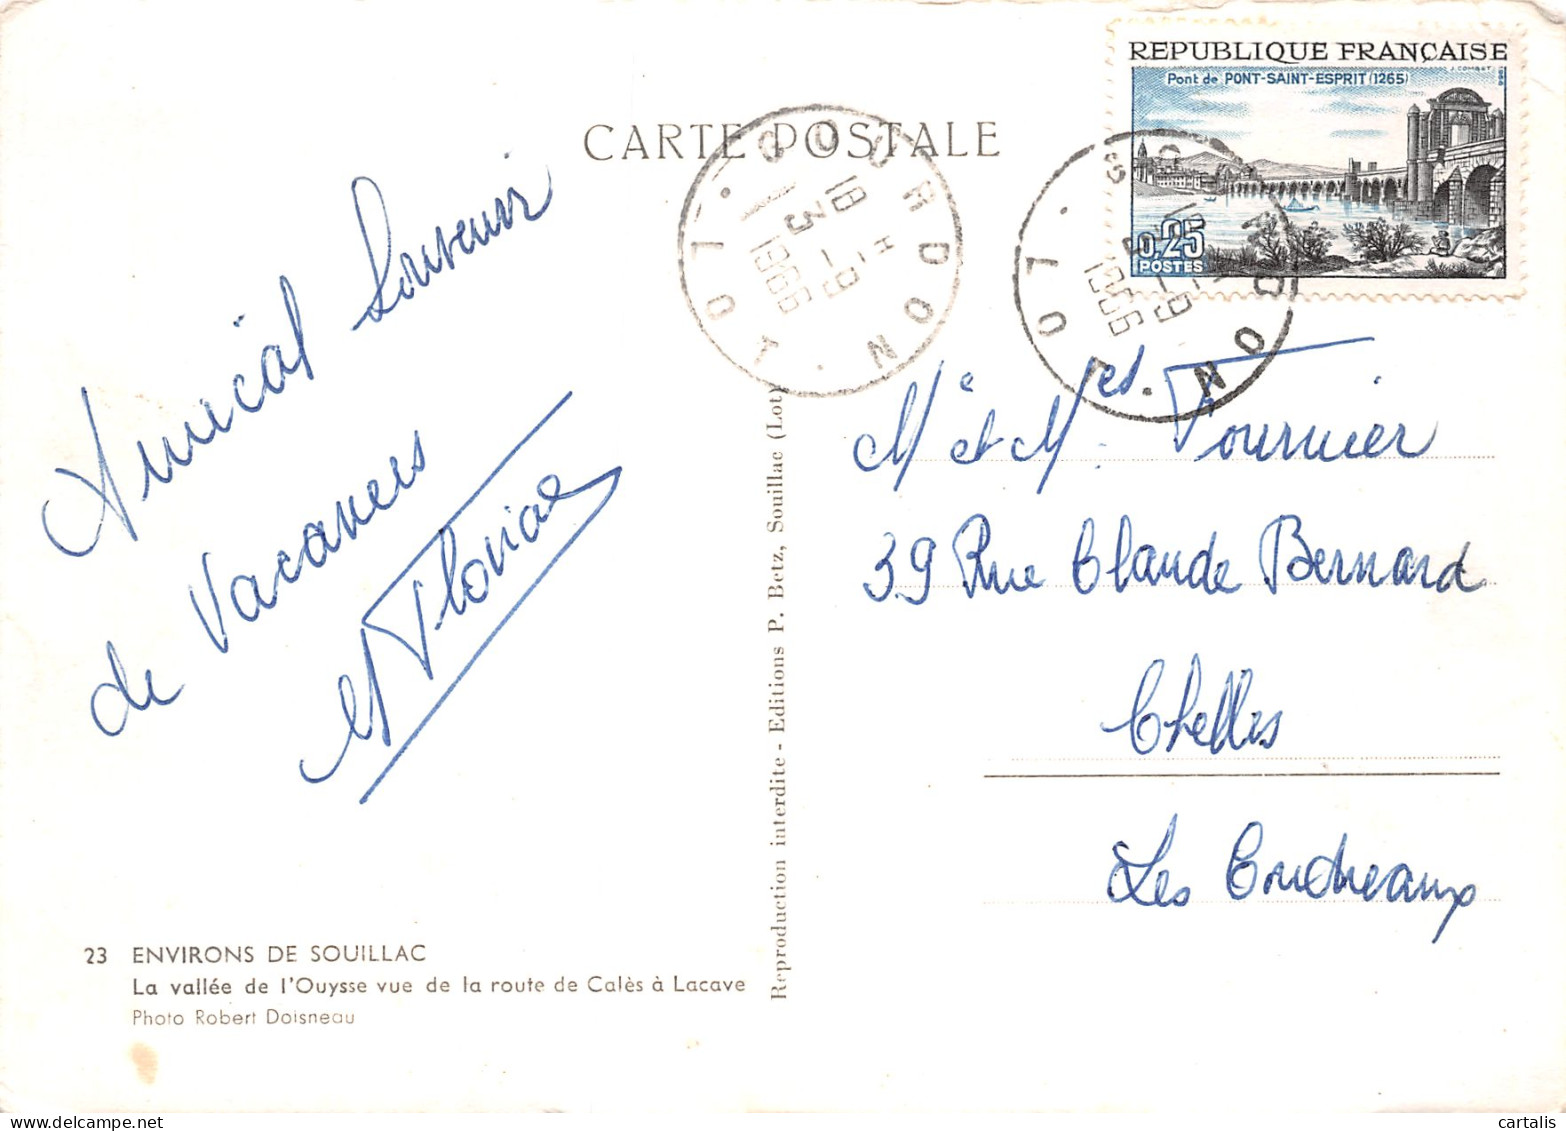 CARTE POSTALE
REPUBLIQUE FRANÇAISE
Pont de PONT-SAINT-ESPRIT (1265)
J. COMBET
0,25
POSTES
GOURDON
LOT
18 H
3 - 9
1966
GOURDON
LOT
18 H
3 - 9
1966
Amical Souvenir
de Vacances
Mr et Mes. Fournier
39 Rue Claude Bernard
Chelles
Les Coudreaux
Reproduction interdite - Editions P. Betz, Souillac (Lot)
23 ENVIRONS DE SOUILLAC
La vallée de l'Ouysse vue de la route de Calès à Lacave
Photo Robert Doisneau
cartalis